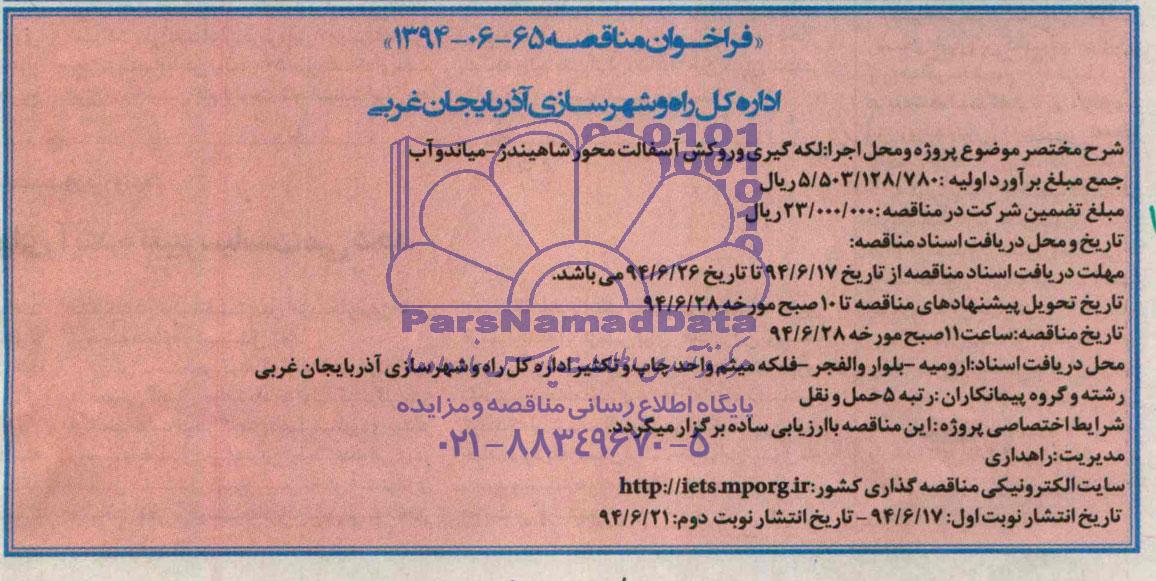 «فراخوان مناقصه ۶۵-۰۶-۱۳۹۴»
اداره کل راه و شهرسازی آذربایجان غربی
شرح مختصر موضوع پروژه و محل اجرا: لکه گیری و روکش آسفالت محور شاهیندژ-میاندوآب
جمع مبلغ برآورد اولیه: ۵/۵۰۳/۱۲۸/۷۸۰ ریال
مبلغ تضمین شرکت در مناقصه: ۲۳/۰۰۰/۰۰۰ ریال
تاریخ و محل دریافت اسناد مناقصه:
مهلت دریافت اسناد مناقصه از تاریخ ۹۴/۶/۱۷ تا تاریخ ۹۴/۶/۲۶ می باشد.
تاریخ تحویل پیشنهادهای مناقصه تا ۱۰ صبح مورخه ۹۴/۶/۲۸
تاریخ مناقصه: ساعت ۱۱ صبح مورخه ۹۴/۶/۲۸
ParsNamadData
محل دریافت اسناد: ارومیه - بلوار والفجر - فلکه میثم واحد چاپ و تکثیر اداره کل راه و شهرسازی آذربایجان غربی
رشته و گروه پیمانکاران: رتبه ۵ حمل و نقل
پایگاه اطلاع رسانی مناقصه و مزایده
شرایط اختصاصی پروژه: این مناقصه باارزیابی ساده برگزار میگردد.
۰۲۱-۸۸۳۴۹۶۷۰-۵
مدیریت: راهداری
سایت الکترونیکی مناقصه گذاری کشور: http://iets.mporg.ir
تاریخ انتشار نوبت اول: ۹۴/۶/۱۷ - تاریخ انتشار نوبت دوم: ۹۴/۶/۲۱